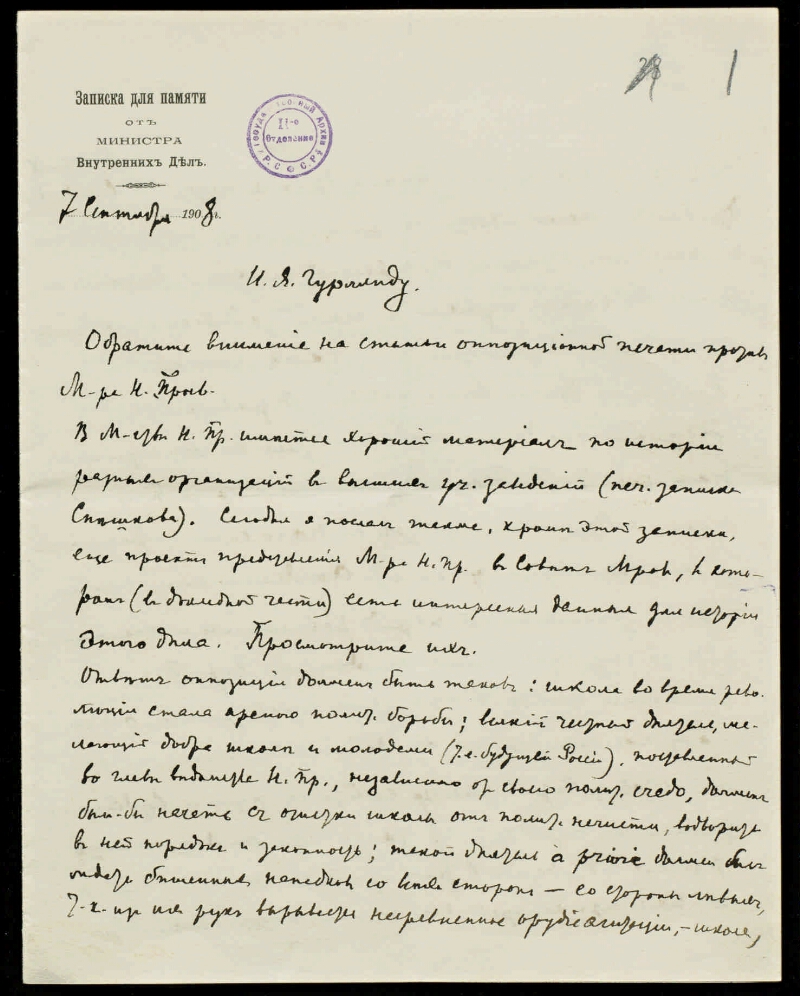 28 1
Записка для памяти
отъ
МИНИСТРА
Внутреннихъ Дѣлъ.
Государственный Архив Р.С.Ф.С.Р.
II-е
Отделение
7 Сентября 1908 г.
И. Я. Гурлянду.
Обратите вниманіе на статьи оппозиціонной печати противъ
М-ра Н. Просв.
В М-ствѣ Н. Пр. имѣется хорошій матеріалъ по исторіи
разныхъ организацій в высшихъ уч. заведеній (печ. записка
Спѣшкова). Сегодня я послалъ также, кромѣ этой записки,
еще проектъ представленія М-ра Н. Пр. в Совѣтъ М-ровъ, в кото-
ромъ (в докладной части) есть интересныя данныя для исторіи
этого дѣла. Просмотрите ихъ.
Отвѣтъ оппозиціи долженъ быть таковъ: школа во время рево-
люціи стала ареною полит. борьбы; всякій честный дѣятель, же-
лающій добра школѣ и молодежи (т.е. будущей Россіи), поставленный
во главѣ вѣдомства Н. Пр., независимо от своего полит. credo, долженъ
былъ-бы начать съ очистки школы отъ полит. нечисти, водворить
в ней порядокъ и законность; такой дѣятель à priori долженъ былъ
ожидать бѣшенныхъ нападковъ со всѣхъ сторонъ — со стороны лѣвыхъ,
т.к. из ихъ рукъ вырывается несравненное орудіе агитаціи, — школа,